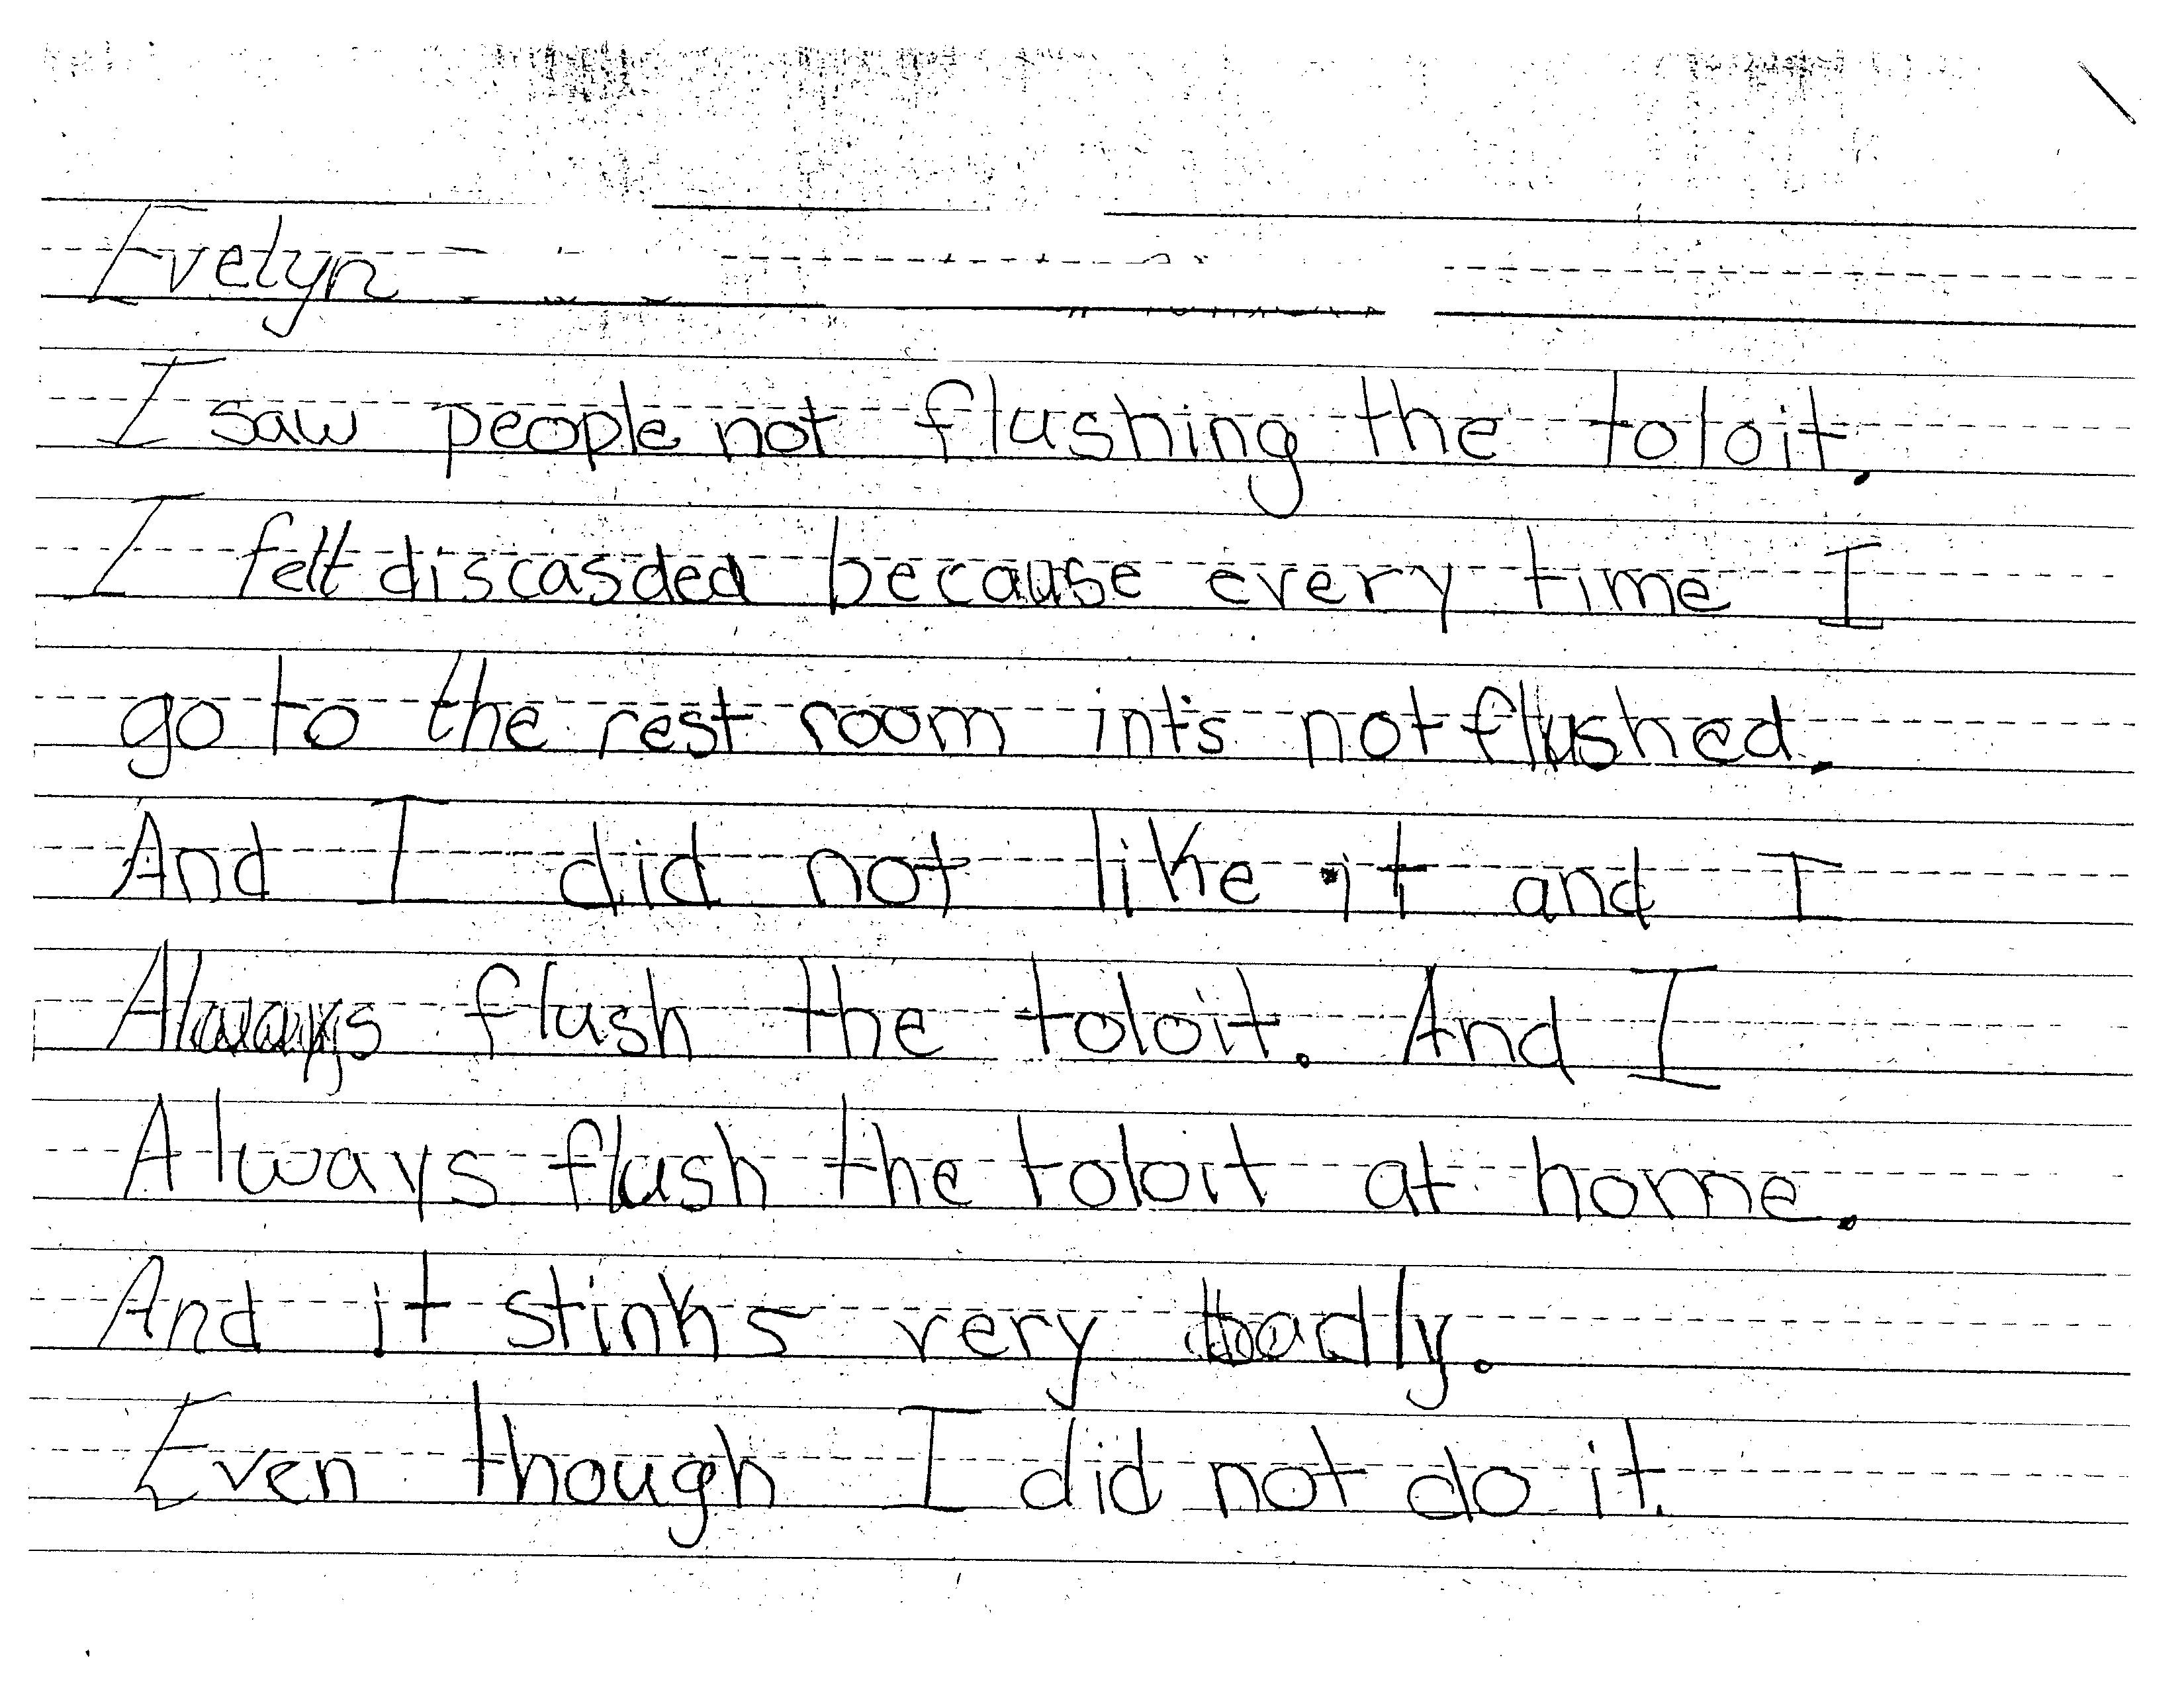 Evelyn
I saw people not flushing the toloit.
I felt discasded because every time I
go to the rest room int's not flushed.
And I did not like it and I
Always flush the toloit. And I
Always flush the toloit at home.
And it stinks very badly.
Even though I did not do it.